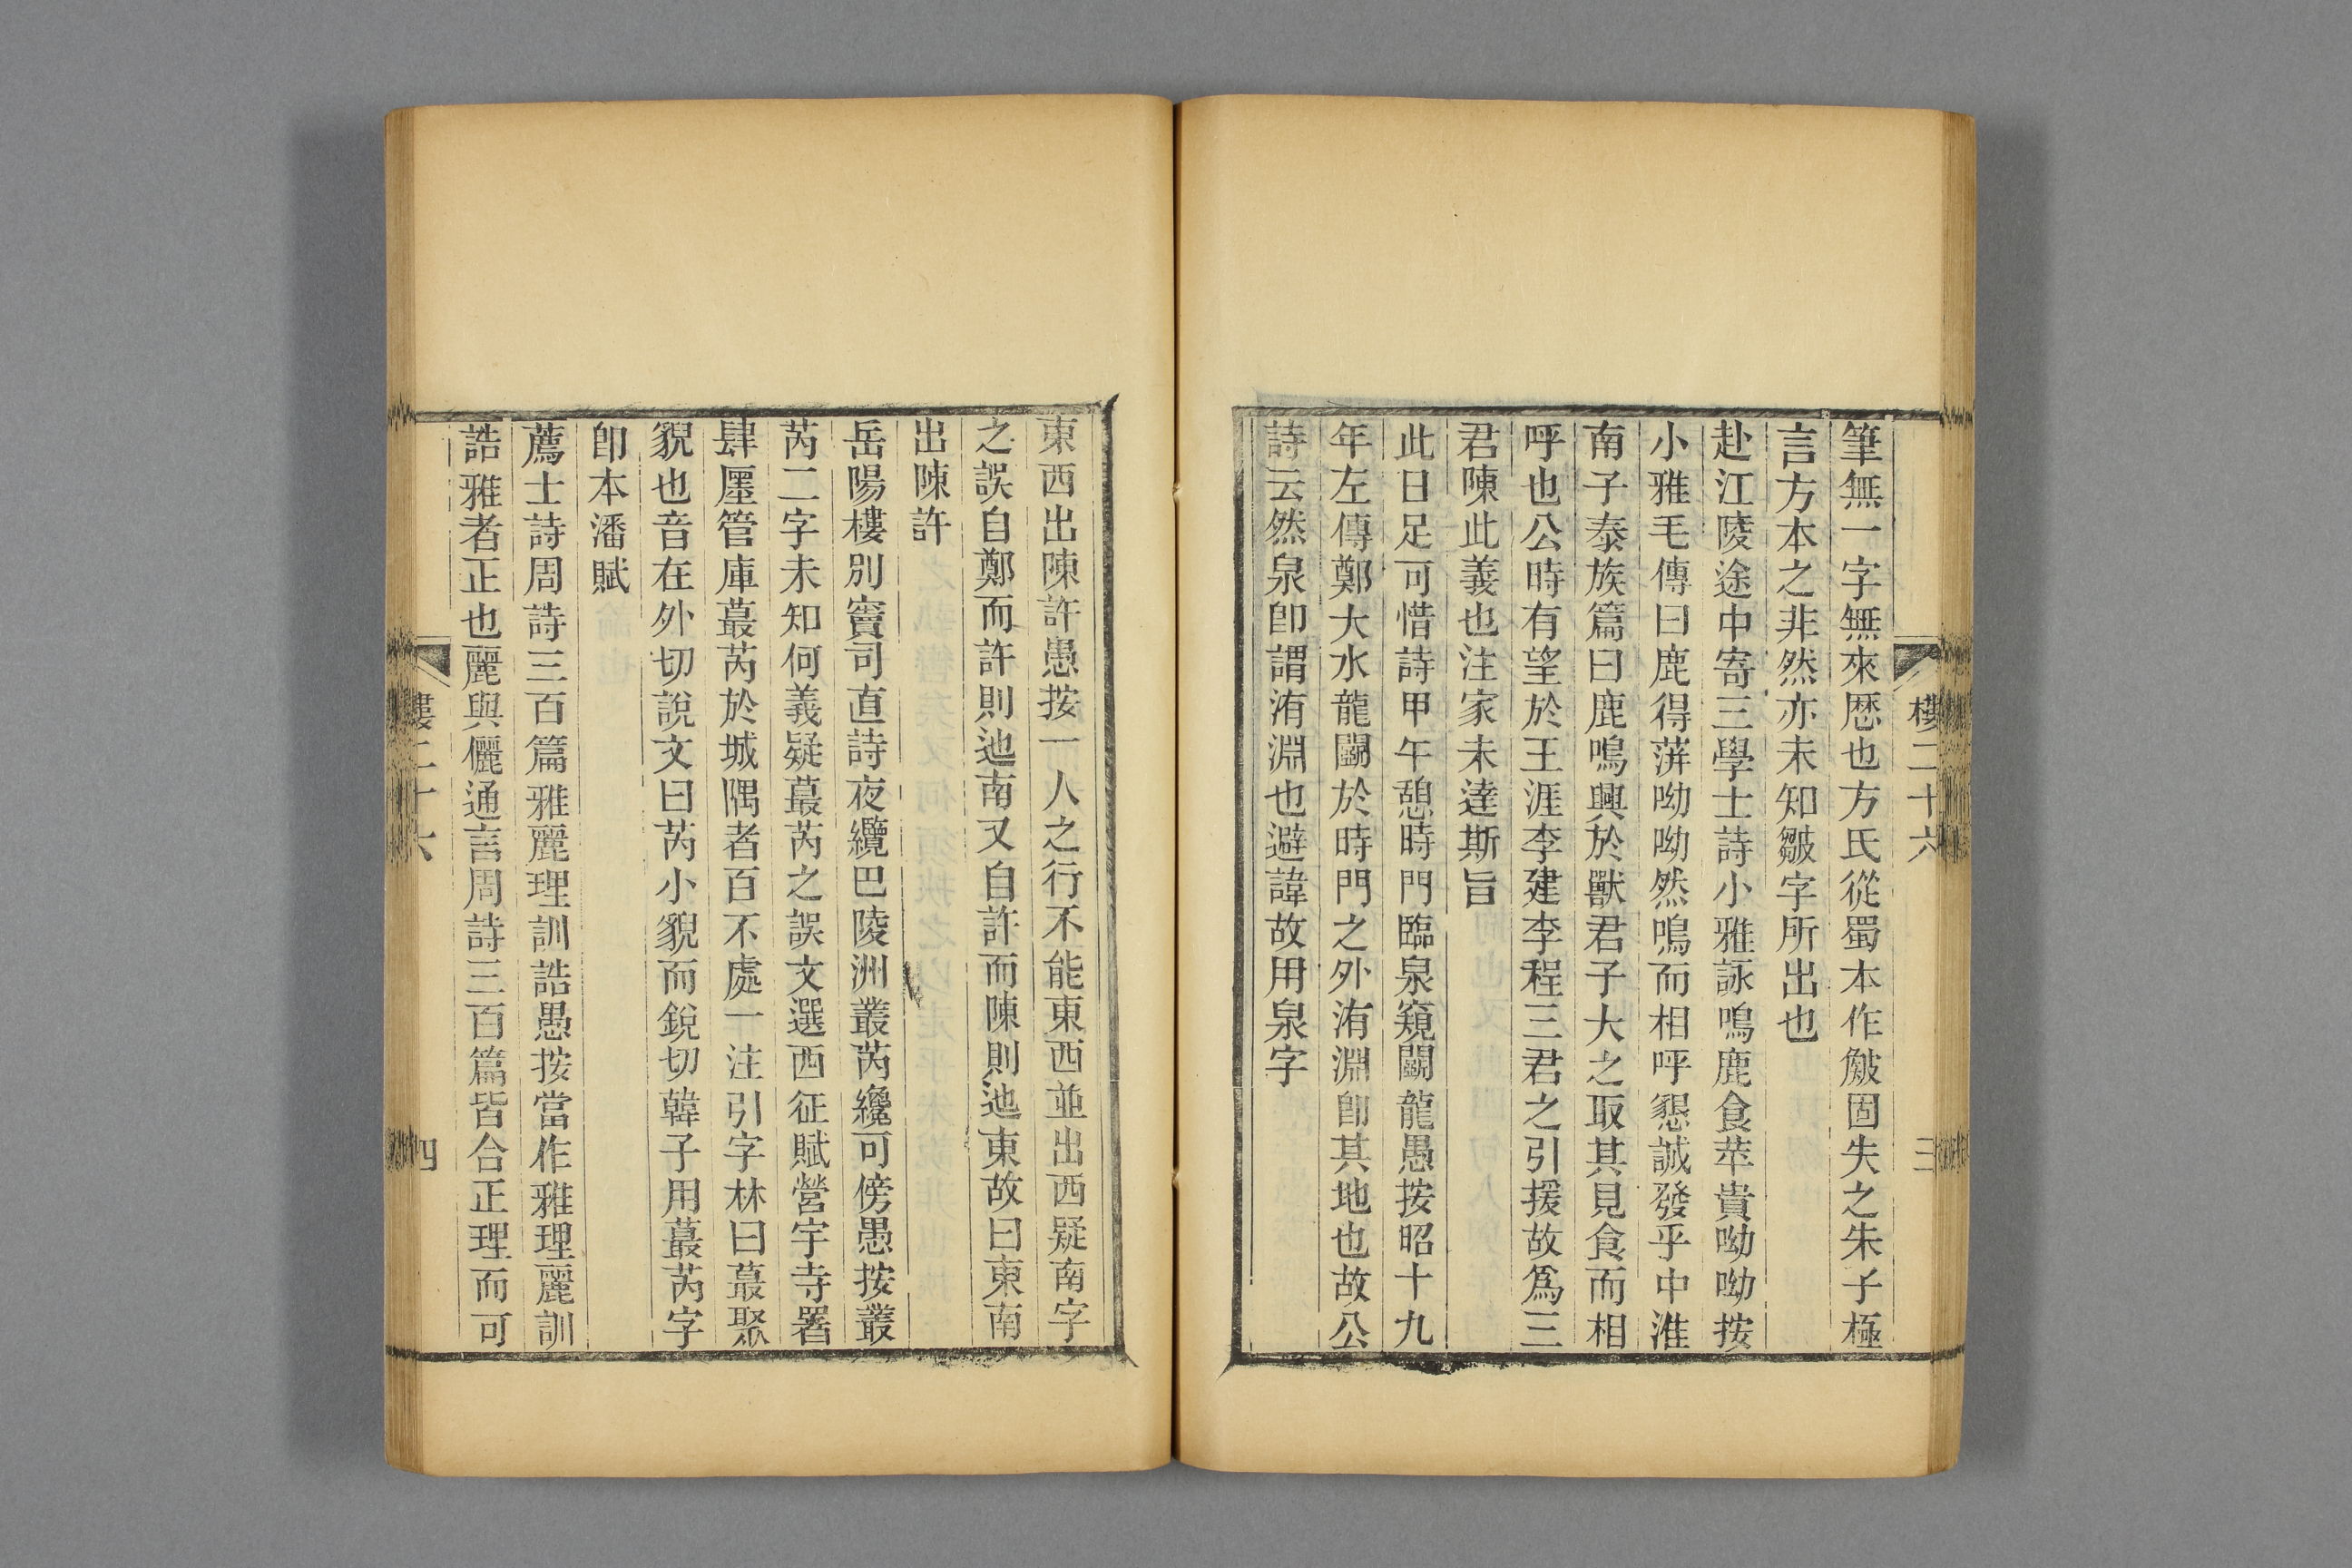 樓二十六
三
筆無一字無來歷也方氏從蜀本作皴固失之朱子極
言方本之非然亦未知皺字所出也
赴江陵途中寄三學士詩小雅詠鳴鹿食苹貴呦呦按
小雅毛傳曰鹿得蓱呦呦然鳴而相呼懇誠發乎中淮
南子泰族篇曰鹿鳴興於獸君子大之取其見食而相
呼也公時有望於王涯李建李程三君之引援故爲三
君陳此義也注家未達斯旨
此日足可惜詩甲午憩時門臨泉窺鬭龍愚按昭十九
年左傳鄭大水龍鬭於時門之外洧淵卽其地也故公
詩云然泉卽謂洧淵也避諱故用泉字
東西出陳許愚按一人之行不能東西並出西疑南字
之誤自鄭而許則迆南又自許而陳則迆東故曰東南
出陳許
岳陽樓別竇司直詩夜纜巴陵洲叢芮纔可傍愚按叢
芮二字未知何義疑蕞芮之誤文選西征賦營宇寺署
肆廛管庫蕞芮於城隅者百不處一注引字林曰蕞聚
貌也音在外切說文曰芮小貌而銳切韓子用蕞芮字
卽本潘賦
薦士詩周詩三百篇雅麗理訓誥愚按當作雅理麗訓
誥雅者正也麗與儷通言周詩三百篇皆合正理而可
樓二十六
四